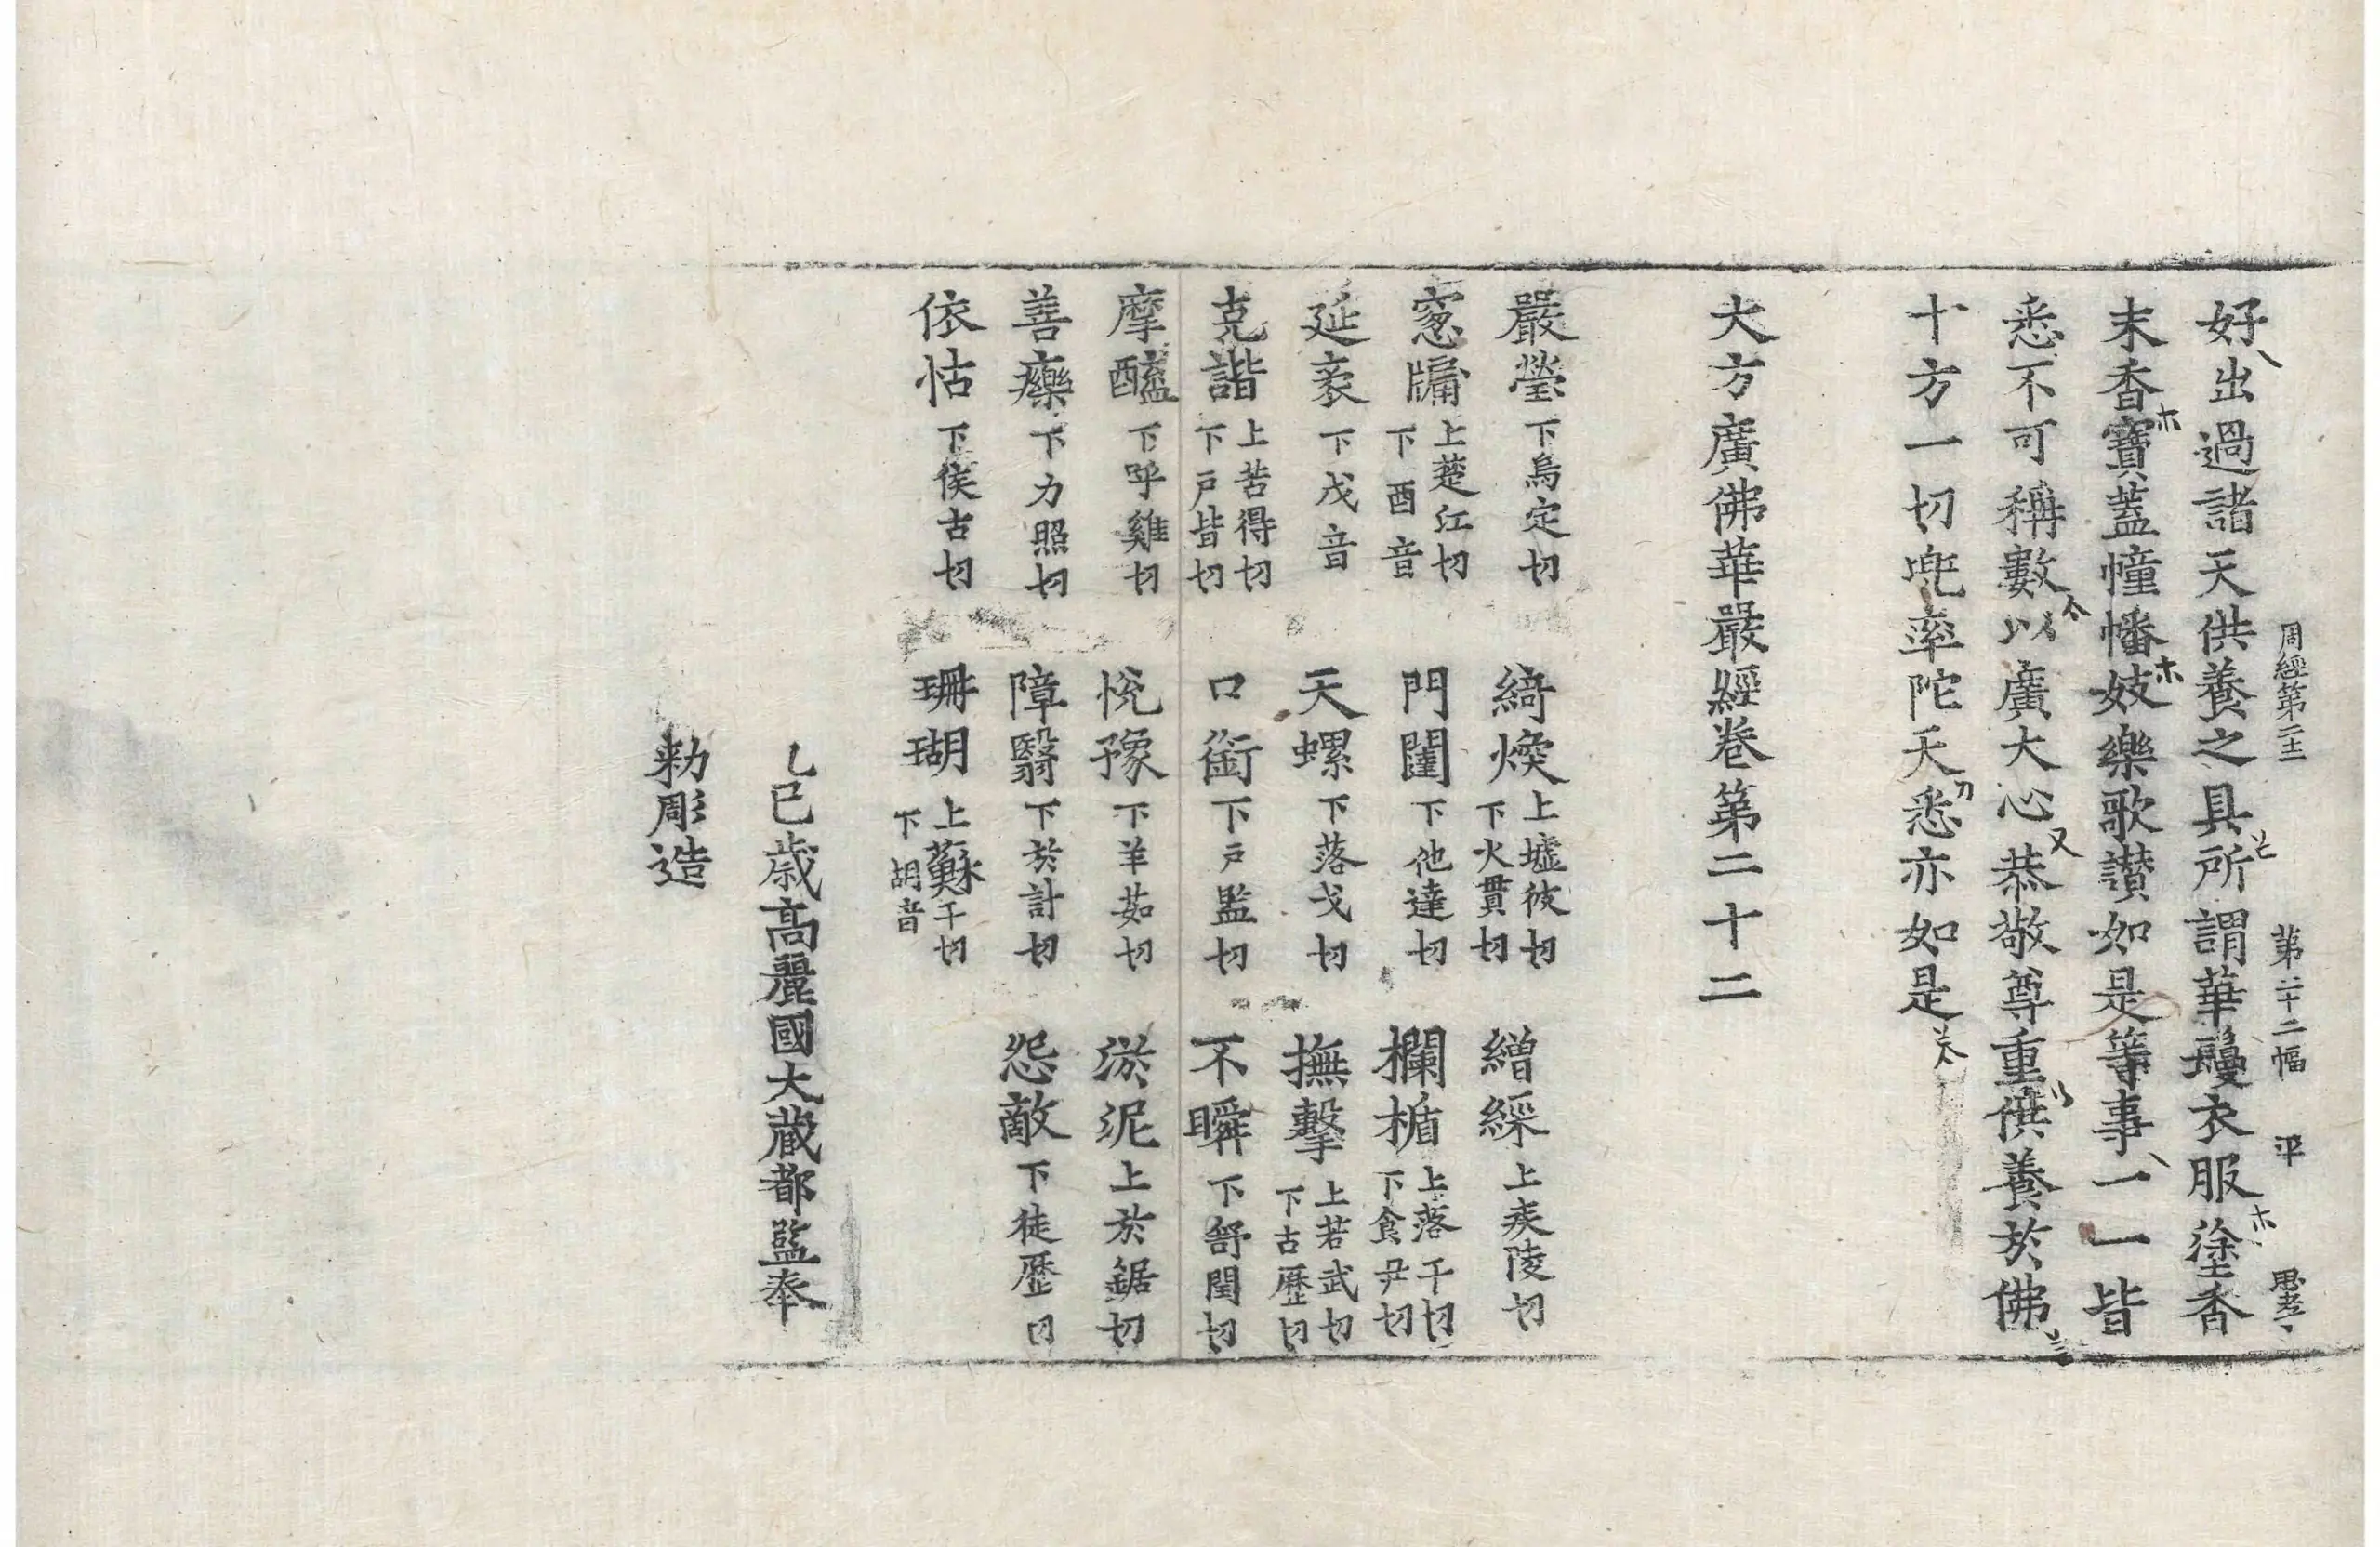 周經第二十二 第二十二幅 平
好出過諸天供養之具所謂華鬘衣服塗香
末香寶蓋幢幡妓樂歌讃如是等事一一皆
悉不可稱數以廣大心恭敬尊重供養於佛
十方一切兜率陀天悉亦如是
大方廣佛華嚴經卷第二十二
嚴瑩下烏定切 綺煥上墟彼切下火貫切 繒綵上疾陵切
窓牖上楚江切下酉音 門闥下他達切 欄楯上落干切下食尹切
延袤下戊音 天螺下落戈切 撫擊上若武切下古歷切
克諧上苦得切下戶皆切 口銜下戶監切 不瞬下舒閏切
摩醯下呼雞切 悅豫下羊茹切 淤泥上於鋸切
善療下力照切 障翳下於計切 怨敵下徒歷切
依怙下侯古切 珊瑚上蘇干切下胡音
乙巳歲高麗國大藏都監奉
勅彫造